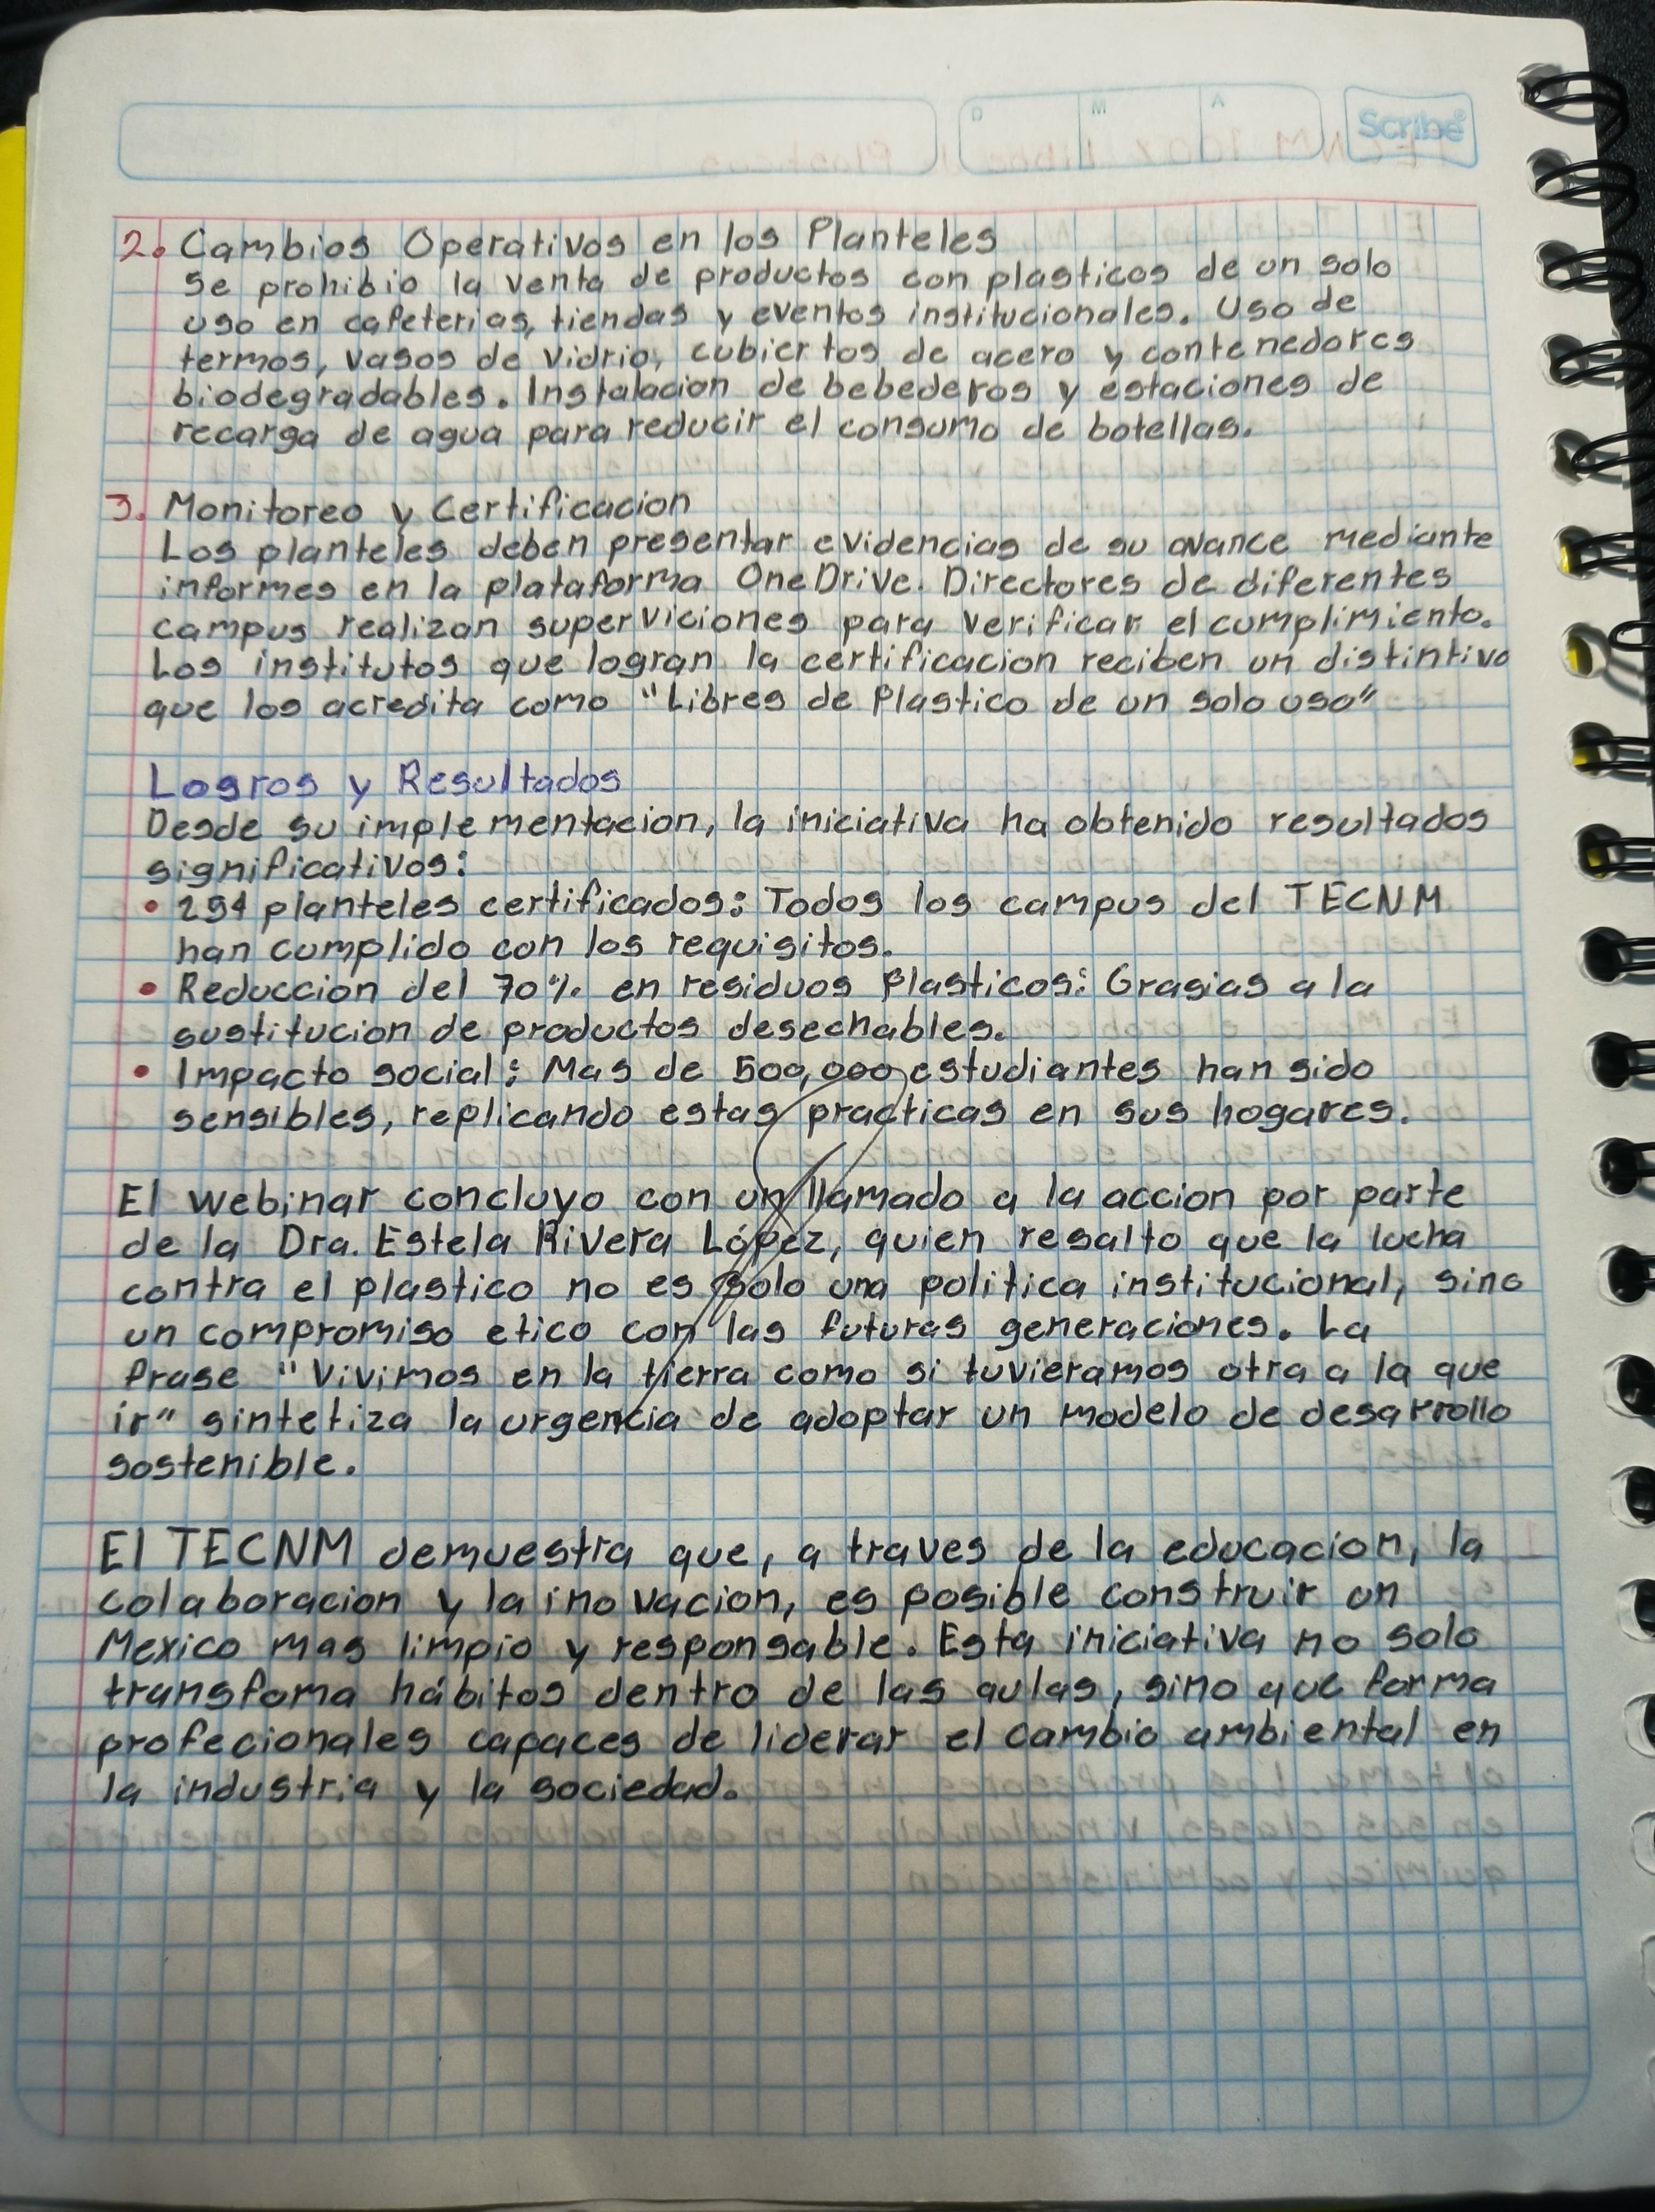 D M A Scribe
2. Cambios Operativos en los Planteles
se prohibio la venta de productos con plasticos de un solo
uso en cafeterias, tiendas y eventos institucionales. Uso de
termos, vasos de vidrio, cubiertos de acero y contenedores
biodegradables. Instalacion de bebederos y estaciones de
recarga de agua para reducir el consumo de botellas.
3. Monitoreo y Certificacion
Los planteles deben presentar evidencias de su avance mediante
informes en la plataforma OneDrive. Directores de diferentes
campus realizan superviciones para verificar el cumplimiento.
Los institutos que logran la certificacion reciben un distintivo
que los acredita como "Libres de Plastico de un solo uso"
Logros y Resultados
Desde su implementacion, la iniciativa ha obtenido resultados
significativos:
• 254 planteles certificados: Todos los campus del TECNM
han cumplido con los requisitos.
• Reduccion del 70% en residuos Plasticos: Grasias a la
sustitucion de productos desechables.
• Impacto social: Mas de 500,000 estudiantes han sido
sensibles, replicando estas practicas en sus hogares.
El webinar concluyo con un llamado a la accion por parte
de la Dra. Estela Rivera López, quien resalto que la lucha
contra el plastico no es solo una politica institucional, sino
un compromiso etico con las futuras generaciones. La
frase "Vivimos en la tierra como si tuvieramos otra a la que
ir" sintetiza la urgencia de adoptar un modelo de desarrollo
sostenible.
El TECNM demuestra que, a traves de la educacion, la
colaboracion y la inovacion, es posible construir un
Mexico mas limpio y responsable. Esta iniciativa no solo
transfoma hábitos dentro de las aulas, sino que forma
profecionales capaces de liderar el cambio ambiental en
la industria y la sociedad.